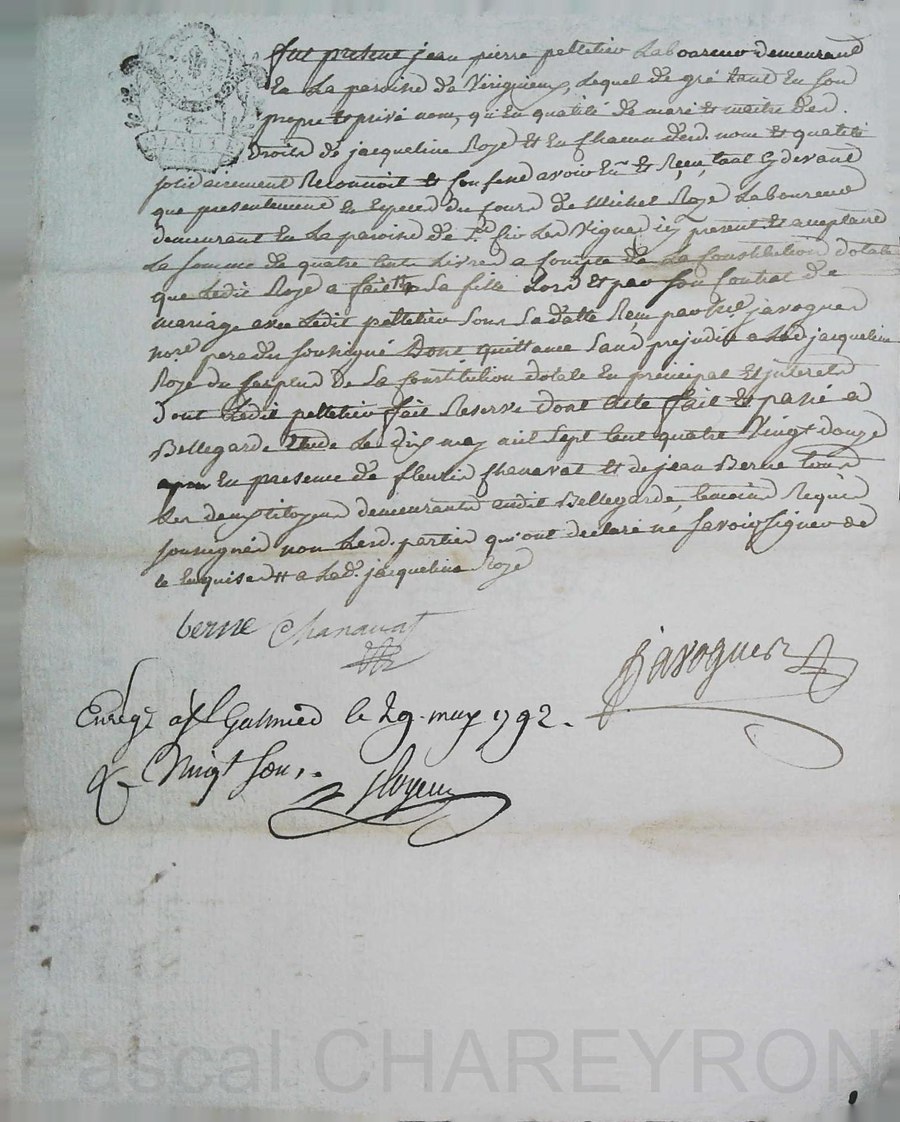 fut présent jean pierre pelletier Laboureur demeurant
En La paroisse de Virigneux, Lequel de gré tant En son
propre & privé nom, qu'En qualité de mari & maitre des
Droits de jacqueline Roze Et En chacun desd. noms & qualités
solidairement Reconnoit & Confesse avoir Eu & Reçu, tant Cydevant
que présentement En Especes du Cours de Michel Roze Laboureur
demeurant En La paroisse de St. Cir Les Vignes icy présent & acceptant
La somme de quatre Cent Livres a Compte de La Constitution dotale
que Ledit Roze a faite # sa fille Lors & par son Contrat de
mariage avec Ledit pelletier Sous Sa datte Reçu par javogues
nore. pere du soussigné Dont quittance sans préjudice a Lad. jacqueline
Roze du surplus de La Constitution dotale En principal Et interets
Dont Ledit pelletier fait Reserve dont acte fait & passé a
Bellegarde Etude Le dix may mil Sept Cent quatre Vingt douze
En présence de fleuri Chanavat Et de jean Berne tous
Les deux Citoyens demeurants audit Bellegarde, temoins Requis
soussignés non Lesd. parties qui ont déclaré ne savoir signer de
ce Enquises # a Lad. jacqueline Roze
berne Chanavat
Javogues
Enregé a St Galmier le 29. may 1792.
Vingt sou,.
Pascal CHAREYRON